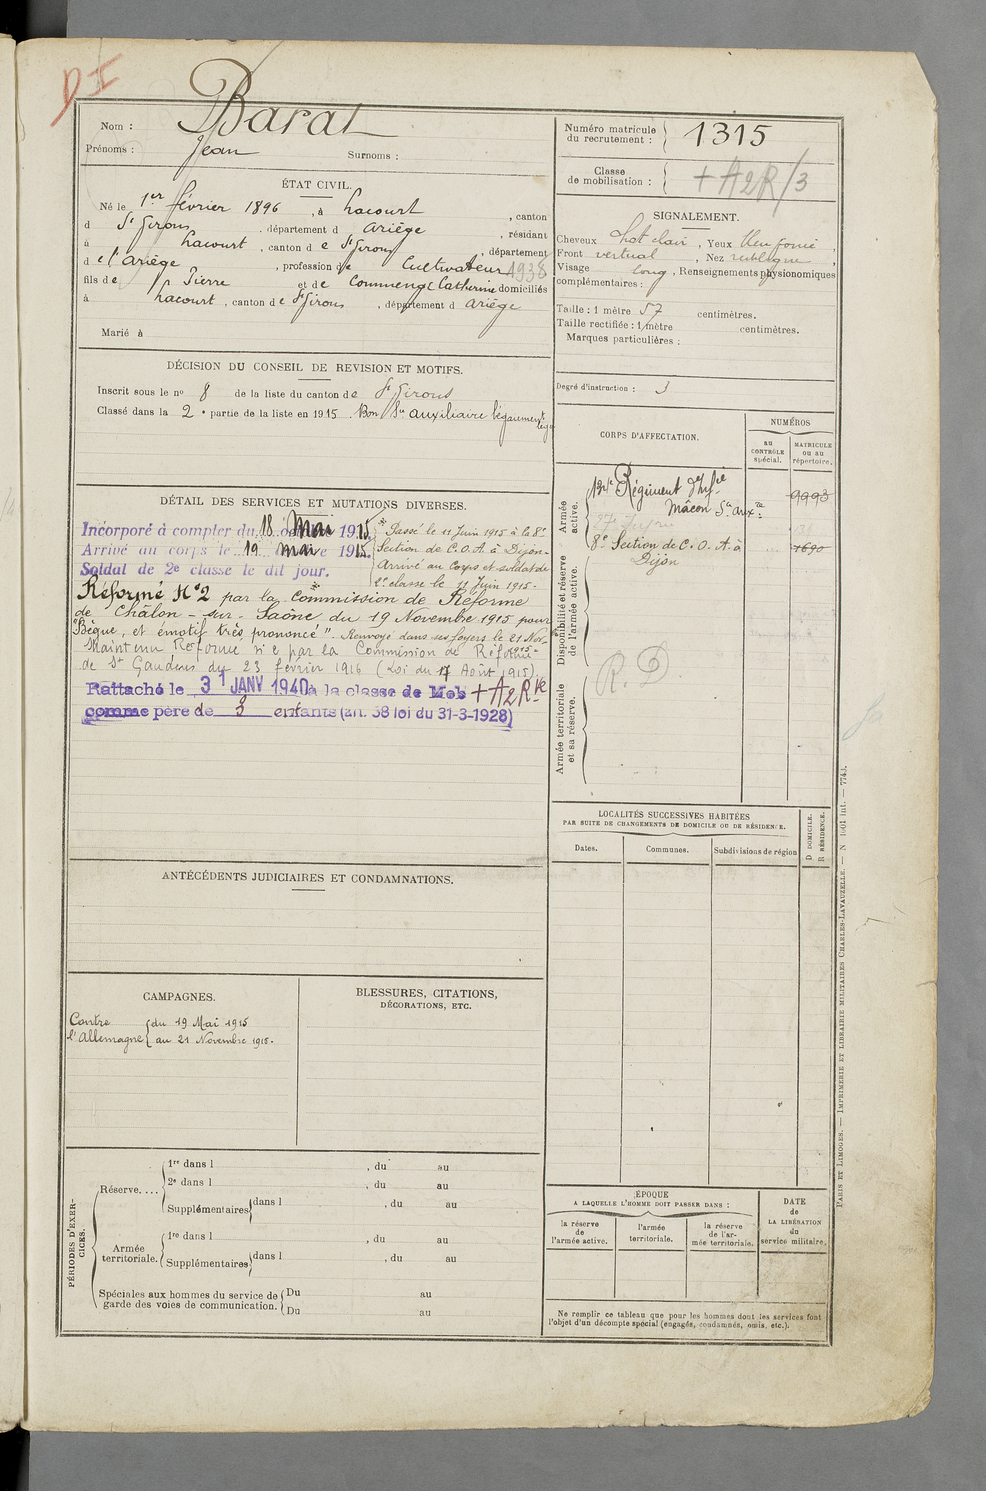 D I
Nom : Barat
Prénoms : Jean Surnoms :
Numéro matricule du recrutement : 1315
Classe de mobilisation : + A2R/3
ÉTAT CIVIL.
Né le 1er février 1896, à Lacourt, canton
d St Girons, département d Ariège, résidant
à Lacourt, canton de St Girons, département
de l'Ariège, profession de Cultivateur 1938
fils de Pierre et de Commenge Catherine domiciliés
à Lacourt, canton de St Girons, département d Ariège
Marié à
SIGNALEMENT.
Cheveux chat clair, Yeux bleu foncé,
Front vertical, Nez rectiligne,
Visage long, Renseignements physionomiques
complémentaires :
Taille : 1 mètre 57 centimètres.
Taille rectifiée : 1 mètre centimètres.
Marques particulières :
Degré d'instruction : 3
DÉCISION DU CONSEIL DE REVISION ET MOTIFS.
Inscrit sous le no 8 de la liste du canton de St Girons
Classé dans la 2e partie de la liste en 1915 Bon Sce auxiliaire bégaiement
CORPS D'AFFECTATION.
NUMÉROS
au CONTRÔLE spécial.
MATRICULE ou au répertoire.
Armée active.
134e Régiment d'Infie 9993
Mâcon Sce auxre
8e Section de C.O.A. à 1690
Dijon
Disponibilité et réserve de l'armée active.
R. D
Armée territoriale et sa réserve.
DÉTAIL DES SERVICES ET MUTATIONS DIVERSES.
Incorporé à compter du 18 Mai 1915
Arrivé au corps le 19 mai 1915.
Soldat de 2e classe le dit jour.
* Passé le 11 Juin 1915 à la 8e
Section de C.O.A. à Dijon-
Arrivé au Corps et soldat de
2e classe le 11 Juin 1915-
Réformé N°2 par la Commission de Réforme
de Châlon-sur-Saône du 19 Novembre 1915 pour
"Bègue, et émotif très prononcé". Renvoyé dans ses foyers le 21 Nov-
1915-
Maintenu Réformé n° 2 par la Commission de Réforme
de St Gaudens du 23 février 1916 (Loi du 17 Août 1915).
Rattaché le 31 JANV 1940 à la classe de Mob + A2Rte
comme père de 3 enfants (art. 58 loi du 31-3-1928)
LOCALITÉS SUCCESSIVES HABITÉES
PAR SUITE DE CHANGEMENTS DE DOMICILE OU DE RÉSIDENCE.
Dates. Communes. Subdivisions de région
D DOMICILE.
R RÉSIDENCE.
ANTÉCÉDENTS JUDICIAIRES ET CONDAMNATIONS.
CAMPAGNES.
Contre l'Allemagne
du 19 Mai 1915
au 21 Novembre 1915.
BLESSURES, CITATIONS,
DÉCORATIONS, ETC.
PÉRIODES D'EXERCICES.
Réserve....
1re dans l , du au
2e dans l , du au
Supplémentaires dans l , du au
Armée territoriale.
1re dans l , du au
Supplémentaires dans l , du au
Spéciales aux hommes du service de
garde des voies de communication.
Du au
Du au
ÉPOQUE
A LAQUELLE L'HOMME DOIT PASSER DANS :
la réserve de l'armée active.
l'armée territoriale.
la réserve de l'armée territoriale.
DATE de LA LIBÉRATION du service militaire.
Ne remplir ce tableau que pour les hommes dont les services font
l'objet d'un décompte spécial (engagés, condamnés, omis, etc.).
PARIS ET LIMOGES. — IMPRIMERIE ET LIBRAIRIE MILITAIRES CHARLES-LAVAUZELLE. — N 1661 int. — 7743.